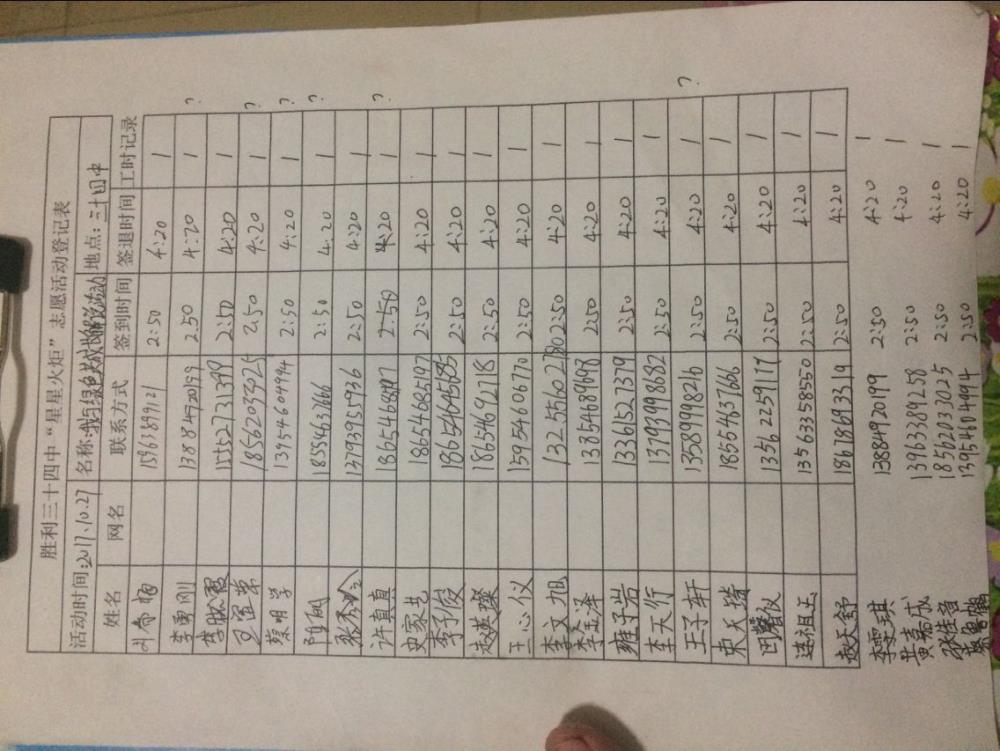 胜利三十四中“星星火炬”志愿活动登记表
活动时间:2017.10.27 名称: 地点:三十四中
姓名 网名 联系方式 签到时间 签退时间 工时记录
2:50 4:20 1
李勇刚 13884920199 2:50 4:20 1 ?
15552731399 2:50 4:20 1
18562033025 2:50 4:20 1 ?
蔡明学 13954604994 2:50 4:20 1 ?
2:50 4:20 1 ?
13793955936 2:50 4:20 1
许真真 2:50 4:20 1 ?
史家艺 18654685197 2:50 4:20 1
李子俊 18654645685 2:50 4:20 1
赵英璨 18654692718 2:50 4:20 1
王心仪 15954606770 2:50 4:20 1
李文旭 13255602780 2:50 4:20 1
李金泽 13854689698 2:50 4:20 1
雍子岩 13361527379 2:50 4:20 1
李天行 13793998682 2:50 4:20 1
王子轩 13589998216 2:50 4:20 1 ?
宋天瑞 18554637666 2:50 4:20 1
13562259117 2:50 4:20 1
连祖玉 13563358550 2:50 4:20 1
赵天舒 18678693319 2:50 4:20 1
李雯琪 13884920199 2:50 4:20 1
黄嘉成 13963389258 2:50 4:20 1
18562033025 2:50 4:20 1
13954604994 2:50 4:20 1